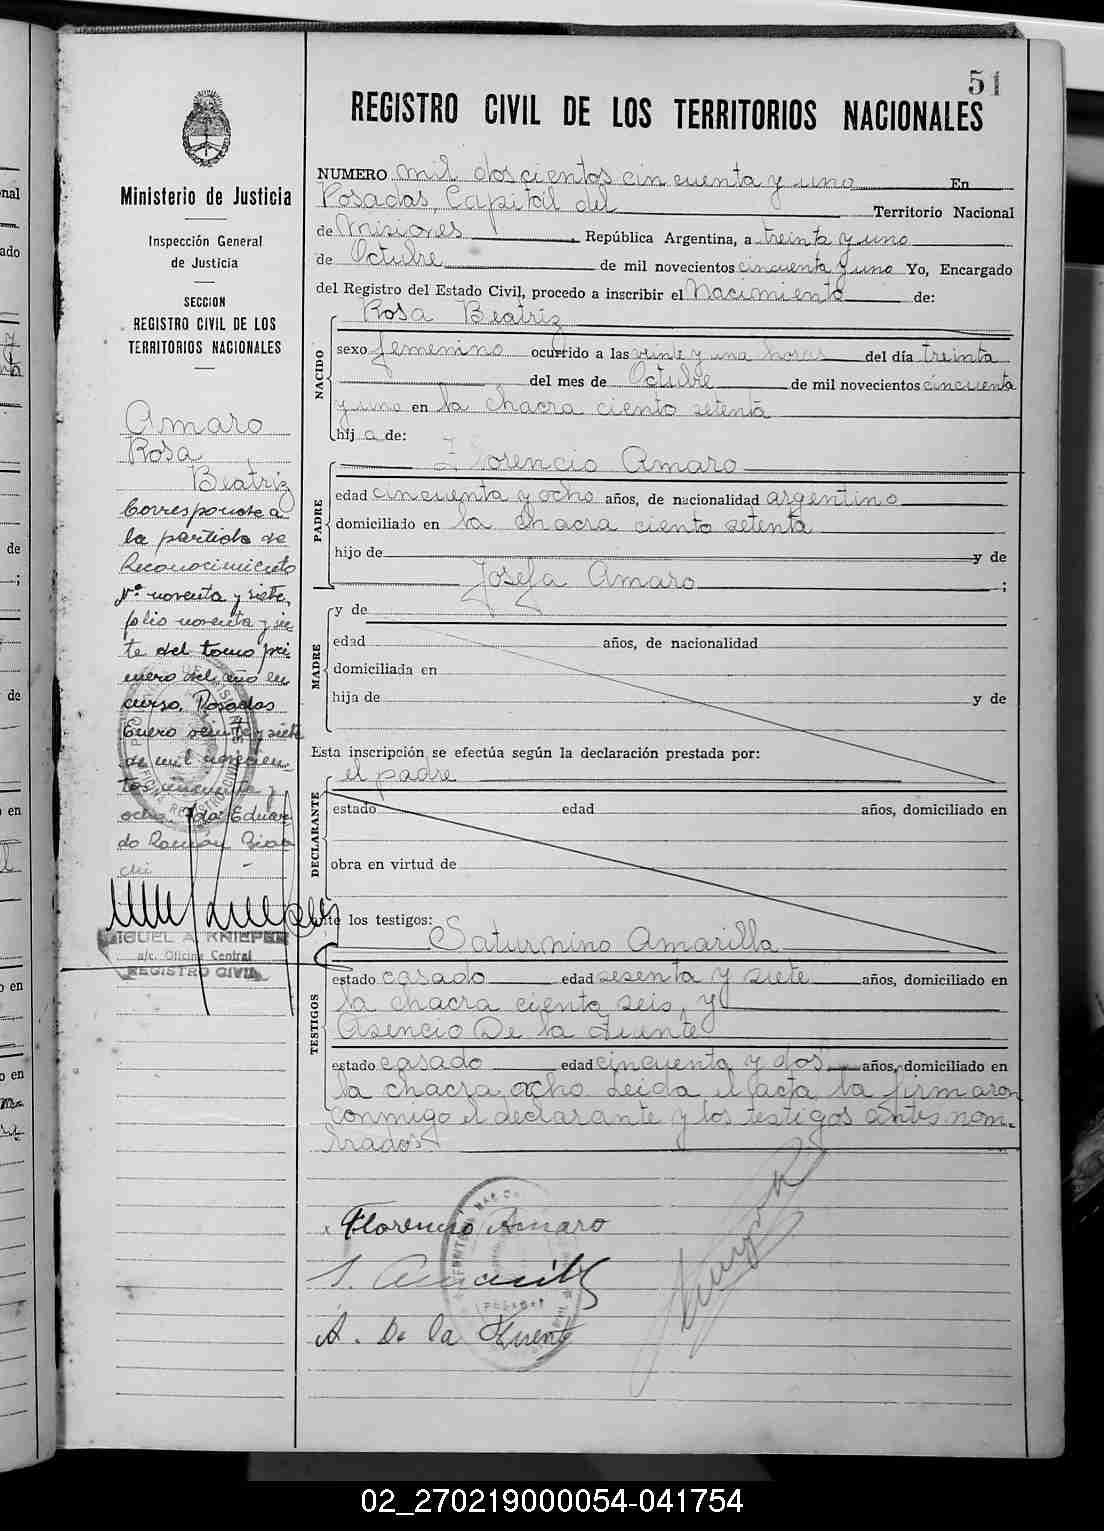 51
REGISTRO CIVIL DE LOS TERRITORIOS NACIONALES
Ministerio de Justicia
Inspección General
de Justicia
SECCION
REGISTRO CIVIL DE LOS
TERRITORIOS NACIONALES
Amaro
Rosa
Beatriz
Corresponde a
la partida de
Reconocimiento
Nº noventa y siete,
folio noventa y sie
te del tomo pri
mero del año en
curso. Posadas
Enero veinte y siete
de mil novecien
tos cincuenta y
ocho. Fdo: Eduar
do Ramón
MIGUEL A. KNIEPER
a/c. Oficina Central
REGISTRO CIVIL
NUMERO mil doscientos cincuenta y uno En
Posadas, Capital del Territorio Nacional
de Misiones, República Argentina, a treinta y uno
de Octubre de mil novecientos cincuenta y uno Yo, Encargado
del Registro del Estado Civil, procedo a inscribir el Nacimiento de:
Rosa Beatriz
NACIDO
sexo femenino ocurrido a las veinte y una horas del día treinta
del mes de Octubre de mil novecientos cincuenta
y uno en la chacra ciento setenta
hij a de:
Florencio Amaro
PADRE
edad cincuenta y ocho años, de nacionalidad argentino
domiciliado en la chacra ciento setenta
hijo de y de
Josefa Amaro ;
MADRE
y de
edad años, de nacionalidad
domiciliada en
hija de y de
Esta inscripción se efectúa según la declaración prestada por:
el padre
DECLARANTE
estado edad años, domiciliado en
obra en virtud de
ante los testigos:
Saturnino Amarilla
TESTIGOS
estado casado edad sesenta y siete años, domiciliado en
la chacra ciento seis, y
Asencio De la Fuente
estado casado edad cincuenta y dos años, domiciliado en
la chacra ocho. Leida el acta, la firmaron
conmigo el declarante y los testigos antes nom-
brados
Florencio Amaro
S. Amarilla
A. De la Fuente
02_270219000054-041754